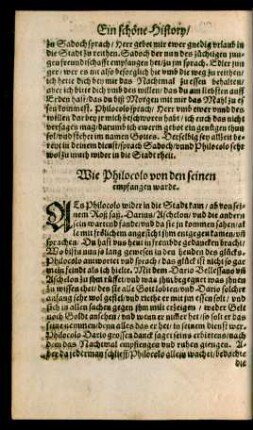 Ein schöne History/
zu Sadoch sprach / Herr gebet mir ewer gnedig vrlaub in
die Stadt zu reithen. Sadoch der nun des Jüchigen jun-
gen freundschafft empfangen het / zu jm sprach. Edler jun
ger / wer es mir also besorglich nit vmb die weg zu reithen /
ich hette dich bey mir das Nachtmal zu essen behalten /
aber ich wil dich des erlassen / vnd da du am liebsten auff
Erden hast / das du biß Morgen mit mir das Mahl zu es
sen kommest. Philocolo sprach / Herr vmb ewr vnd des
willen dar bey je mich beschworen habt / ich euch das nicht
versagen mag / darumb ich ewerm gebot ein genügen thun
sol / vnd stehet im namen Gottes. Derselbig sey allzeit be-
reyt in deinem dienst / sprach Sadoch / vnnd Philocolo sehr
wol zu muth wider in die Stadt rheit.
Wie Philocolo von den seinen
empfangen warde.
ALs Philocolo wider in die Stadt kam / ab von sei-
nem Roß saß. Darius / Aschelon / vnd die andern
sein wartend fande / vnd da sie jn kommen sahen / al
le mit frölichem angesicht jhm entgegen kamen / vñ
sprachen. Du hast vns heut in frembde gedancken bracht /
Wo bistu nun so lang gewesen in den henden des glücks.
Philocolo antwortet vñ sprach / das glück ist nicht so gar
mein feindt als ich hielte. Mit dem Dario Bellessano vñ
Aschelon zu jhm rüffet / vnd was jhm begegnet was jhnen
zu wissen thet / des sie alle Gott lobten / vnd Dario solcher
anfang sehr wol gefiel / vnd riethe er mit jm essen solt / vnd
sich in allen sachen gegen jhm milt erzeigen / weder Gelt
noch Goldt ansehen / vnd wenn er micket het / so solt er das
seine nemmen / denn alles das er het / in seinem dienst wer.
Philocolo Dario grossen danck saget seins erbietens / nach
dem das Nachtmal empfiengen vnd ruhen giengen. A-
ber da jederman schlieff / Philocolo allein wachet / bedachte
die